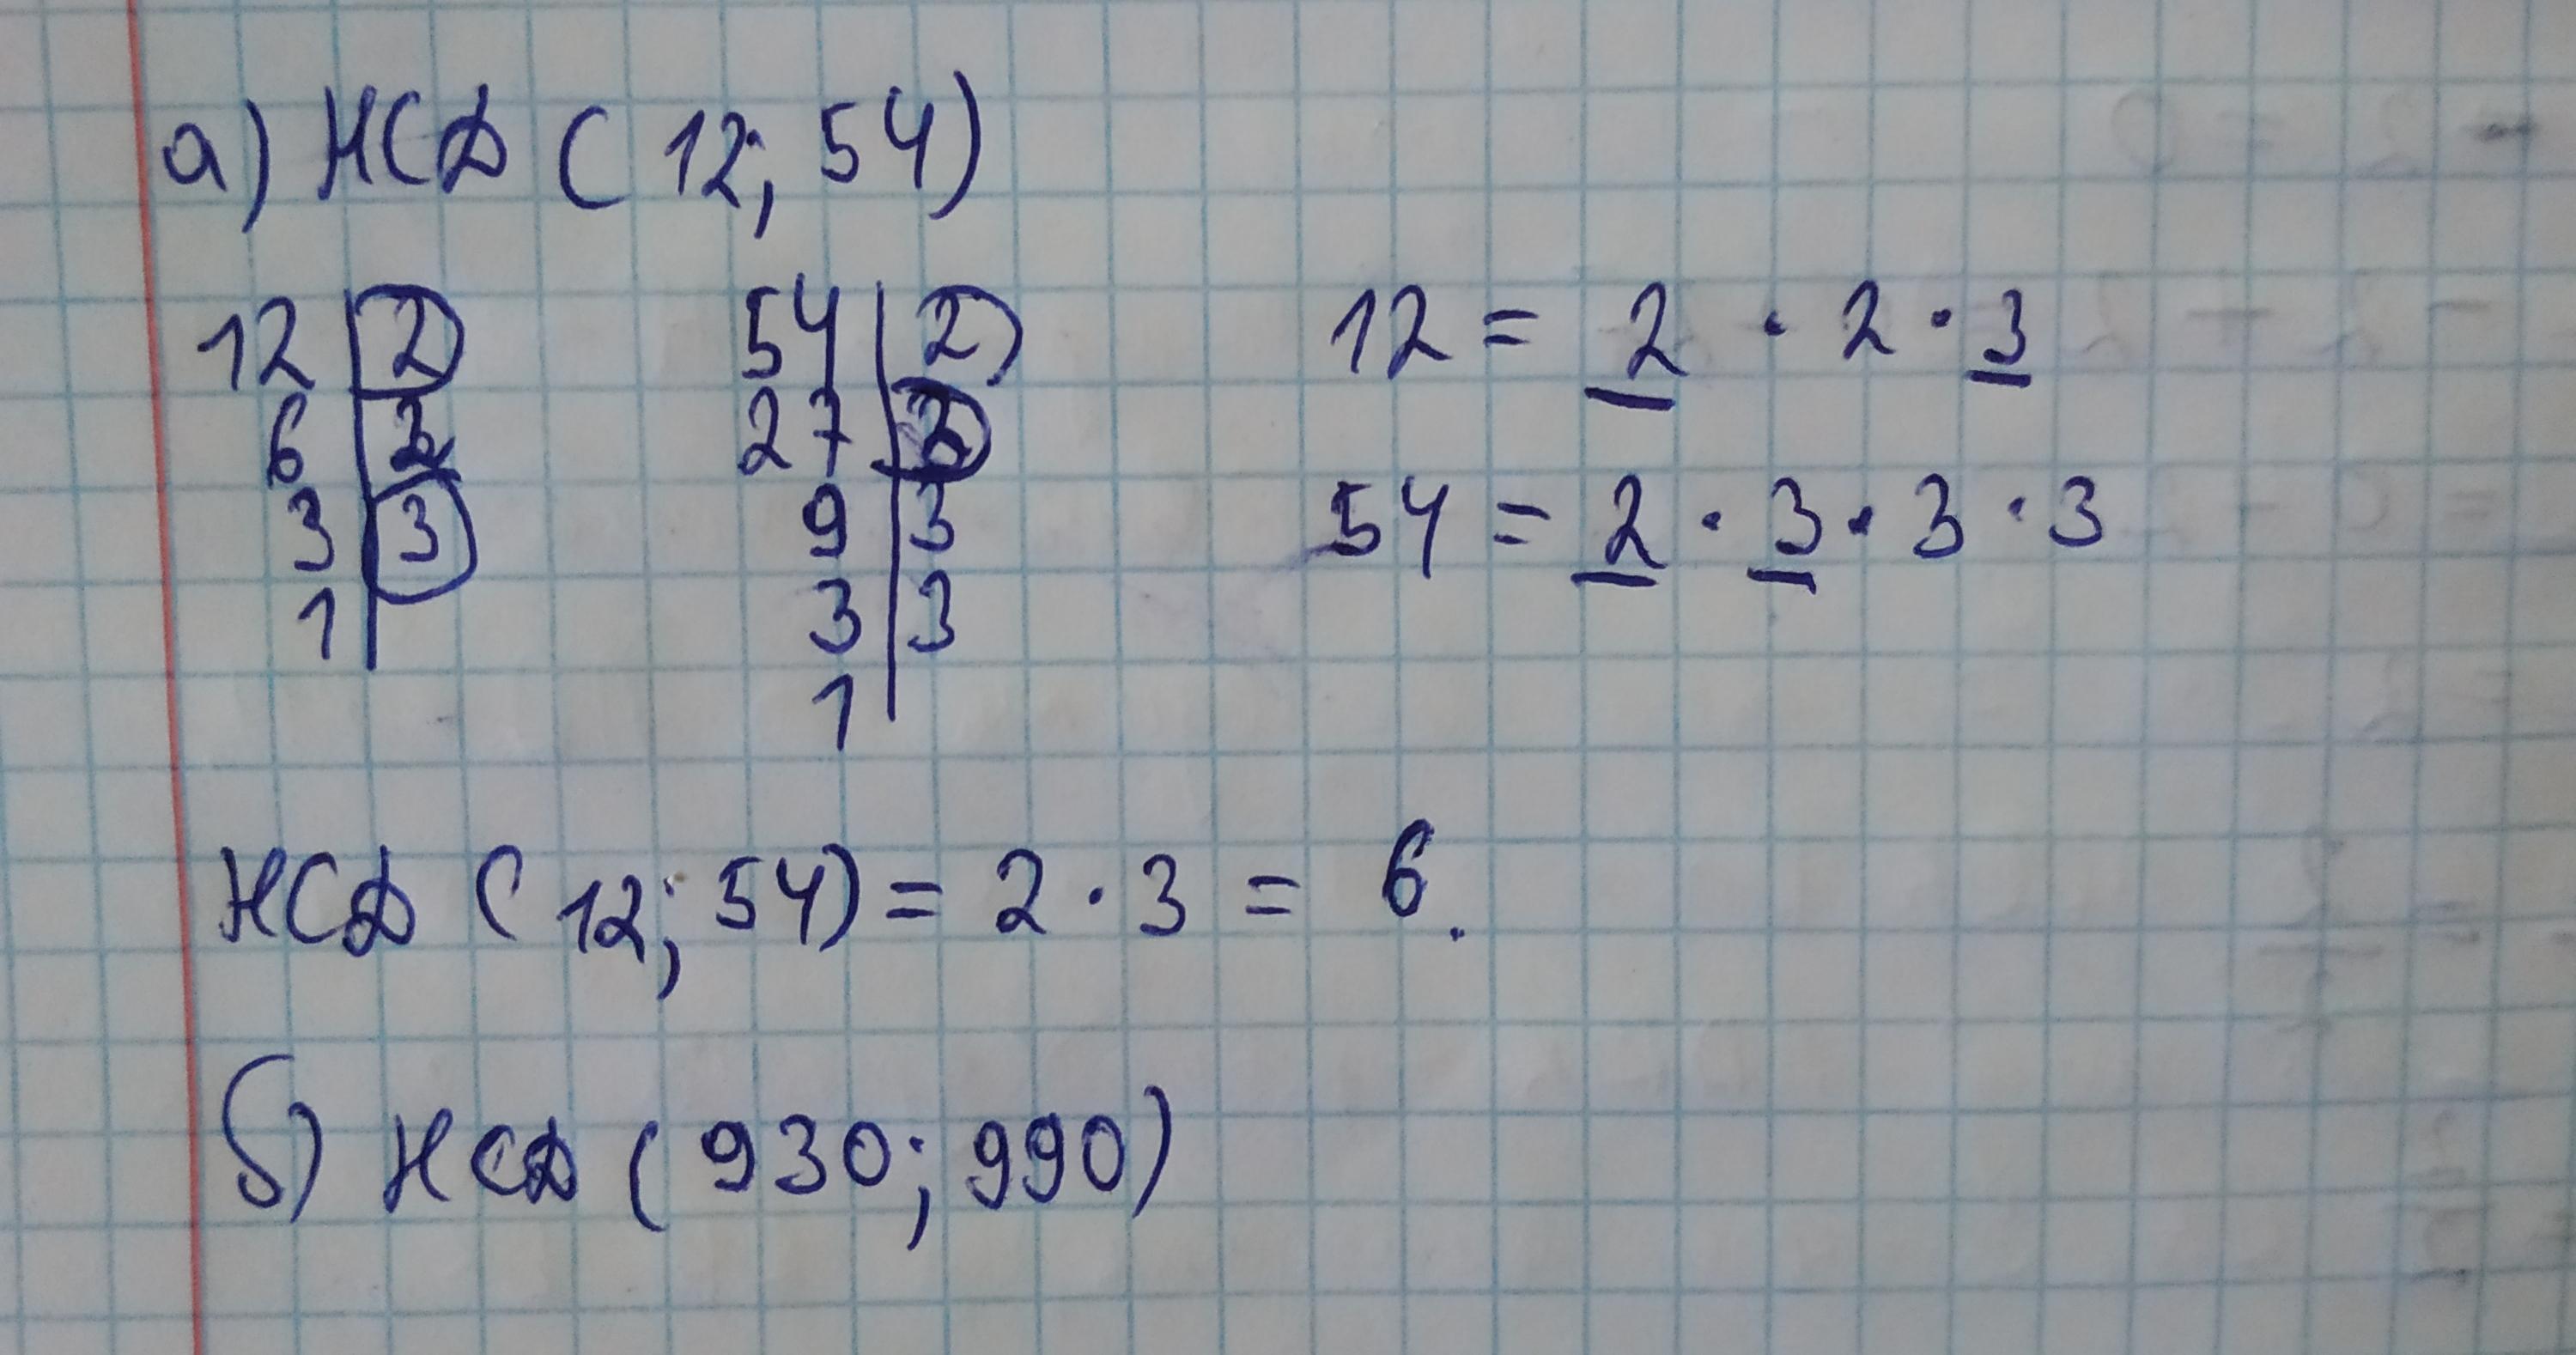 а) НСД (12; 54)
12 | 2 54 | 2 12 = 2 · 2 · 3
6 | 2 27 | 3
3 | 3 9 | 3 54 = 2 · 3 · 3 · 3
1 | 3 | 3
1 |
НСД (12; 54) = 2 · 3 = 6.
б) НСД (930; 990)